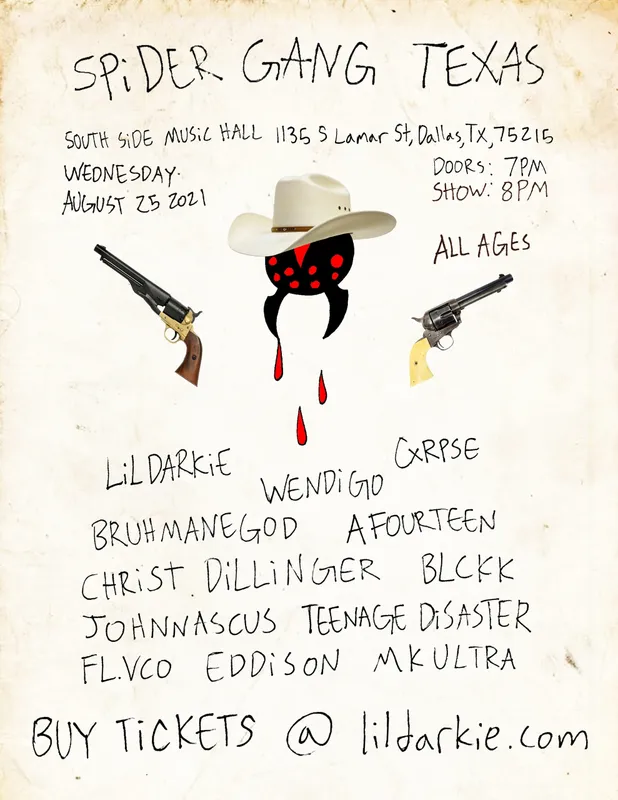 SPiDER GANG TEXAS
SOUTH SiDE MUSiC HALL 1135 S Lamar St, Dallas, TX, 75215
WEDNESDAY.
AUGUST 25 2021
DOORS: 7PM
SHOW: 8PM
ALL AGES
LiLDARKiE WENDiGO CXRPSE
BRUHMANEGOD AFOURTEEN
CHRIST DiLLiNGER BLCKK
JOHNNASCUS TEENAGE DiSASTER
FL.VCO EDDiSON MKULTRA
BUY TiCKETS @ lildarkie.com